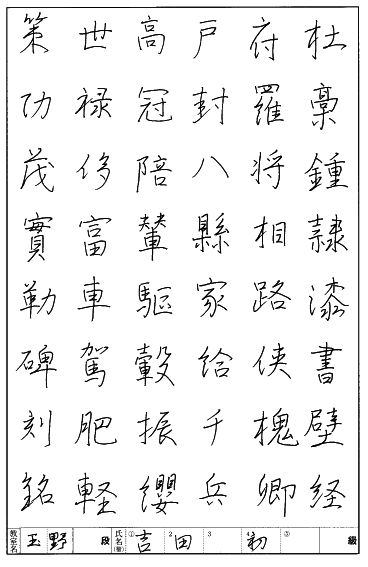 杜稾鍾隷漆書壁経
府羅将相路侠槐卿
戸封八縣家給千兵
高冠陪輦驅轂振纓
世禄侈富車駕肥軽
策功茂實勒碑刻銘
教室名 玉野 段 氏名(号) ① 吉 2 田 3 4 初 ⑤ 級